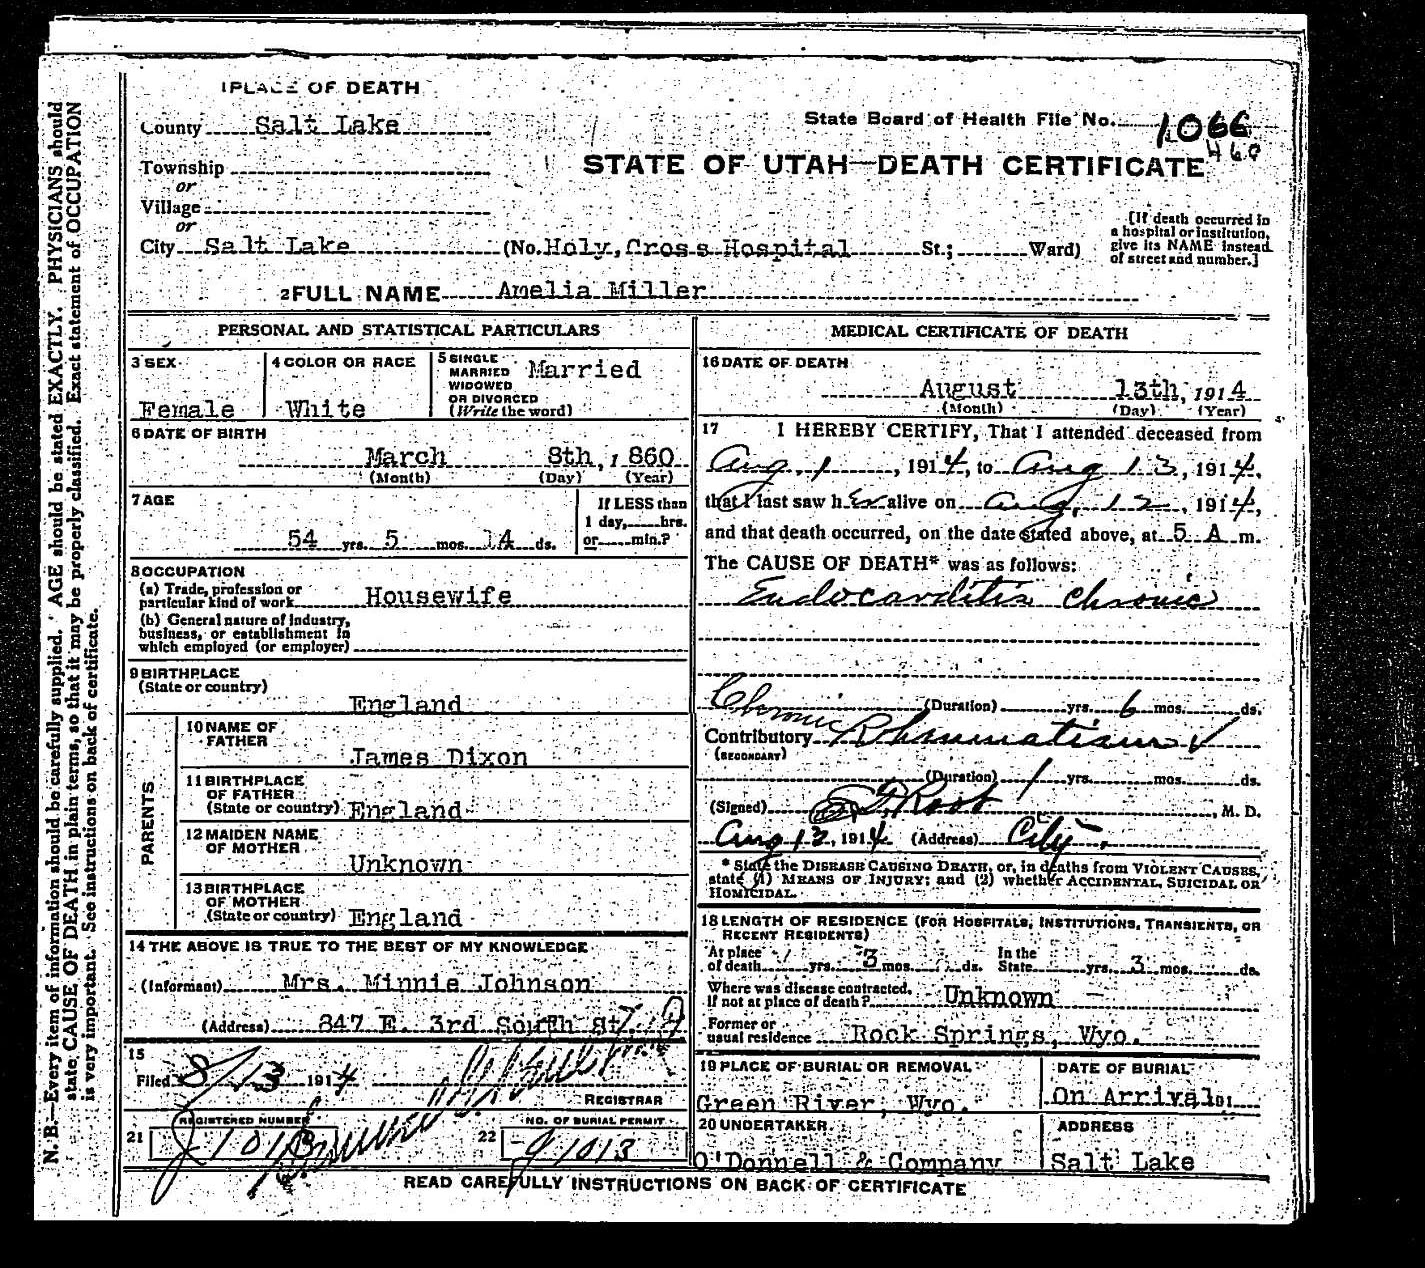 1 PLACE OF DEATH
County Salt Lake
State Board of Health File No. 1066
460
Township
STATE OF UTAH—DEATH CERTIFICATE
or
Village
or
City Salt Lake (No. Holy Cross Hospital St.; Ward)
[If death occurred in
a hospital or institution,
give its NAME instead
of street and number.]
2 FULL NAME Amelia Miller
PERSONAL AND STATISTICAL PARTICULARS
3 SEX
Female
4 COLOR OR RACE
White
5 SINGLE
MARRIED
WIDOWED
OR DIVORCED
(Write the word)
Married
6 DATE OF BIRTH
March 8th, 1860
(Month) (Day) (Year)
7 AGE
54 yrs. 5 mos. 14 ds.
If LESS than
1 day, hrs.
or min.?
8 OCCUPATION
(a) Trade, profession or
particular kind of work Housewife
(b) General nature of industry,
business, or establishment in
which employed (or employer)
9 BIRTHPLACE
(State or country)
England
PARENTS
10 NAME OF
FATHER
James Dixon
11 BIRTHPLACE
OF FATHER
(State or country) England
12 MAIDEN NAME
OF MOTHER
Unknown
13 BIRTHPLACE
OF MOTHER
(State or country) England
14 THE ABOVE IS TRUE TO THE BEST OF MY KNOWLEDGE
(Informant) Mrs. Minnie Johnson
(Address) 847 E. 3rd South St.
15
Filed 8/13 1914
REGISTRAR
REGISTERED NUMBER
21 J 1013
NO. OF BURIAL PERMIT
22 J 1013
MEDICAL CERTIFICATE OF DEATH
16 DATE OF DEATH
August 13th, 1914
(Month) (Day) (Year)
17 I HEREBY CERTIFY, That I attended deceased from
Aug. 1, 1914, to Aug 13, 1914,
that I last saw her alive on Aug. 12, 1914,
and that death occurred, on the date stated above, at 5 A m.
The CAUSE OF DEATH* was as follows:
Endocarditis Chronic
(Duration) yrs. 6 mos. ds.
Chronic
Contributory Rheumatism
(SECONDARY)
(Duration) 1 yrs. mos. ds.
(Signed) Root, M. D.
Aug 13, 1914 (Address) City.
* State the DISEASE CAUSING DEATH, or, in deaths from VIOLENT CAUSES,
state (1) MEANS OF INJURY; and (2) whether ACCIDENTAL, SUICIDAL OR
HOMICIDAL.
18 LENGTH OF RESIDENCE (FOR HOSPITALS, INSTITUTIONS, TRANSIENTS, OR
RECENT RESIDENTS)
At place
of death yrs. 3 mos. ds.
In the
State yrs. 3 mos. ds.
Where was disease contracted,
if not at place of death? Unknown
Former or
usual residence Rock Springs, Wyo.
19 PLACE OF BURIAL OR REMOVAL
Green River, Wyo.
DATE OF BURIAL
On Arrival 191
20 UNDERTAKER
O'Donnell & Company
ADDRESS
Salt Lake
READ CAREFULLY INSTRUCTIONS ON BACK OF CERTIFICATE
N. B.—Every item of information should be carefully supplied. AGE should be stated EXACTLY. PHYSICIANS should
state CAUSE OF DEATH in plain terms, so that it may be properly classified. Exact statement of OCCUPATION
is very important. See instructions on back of certificate.